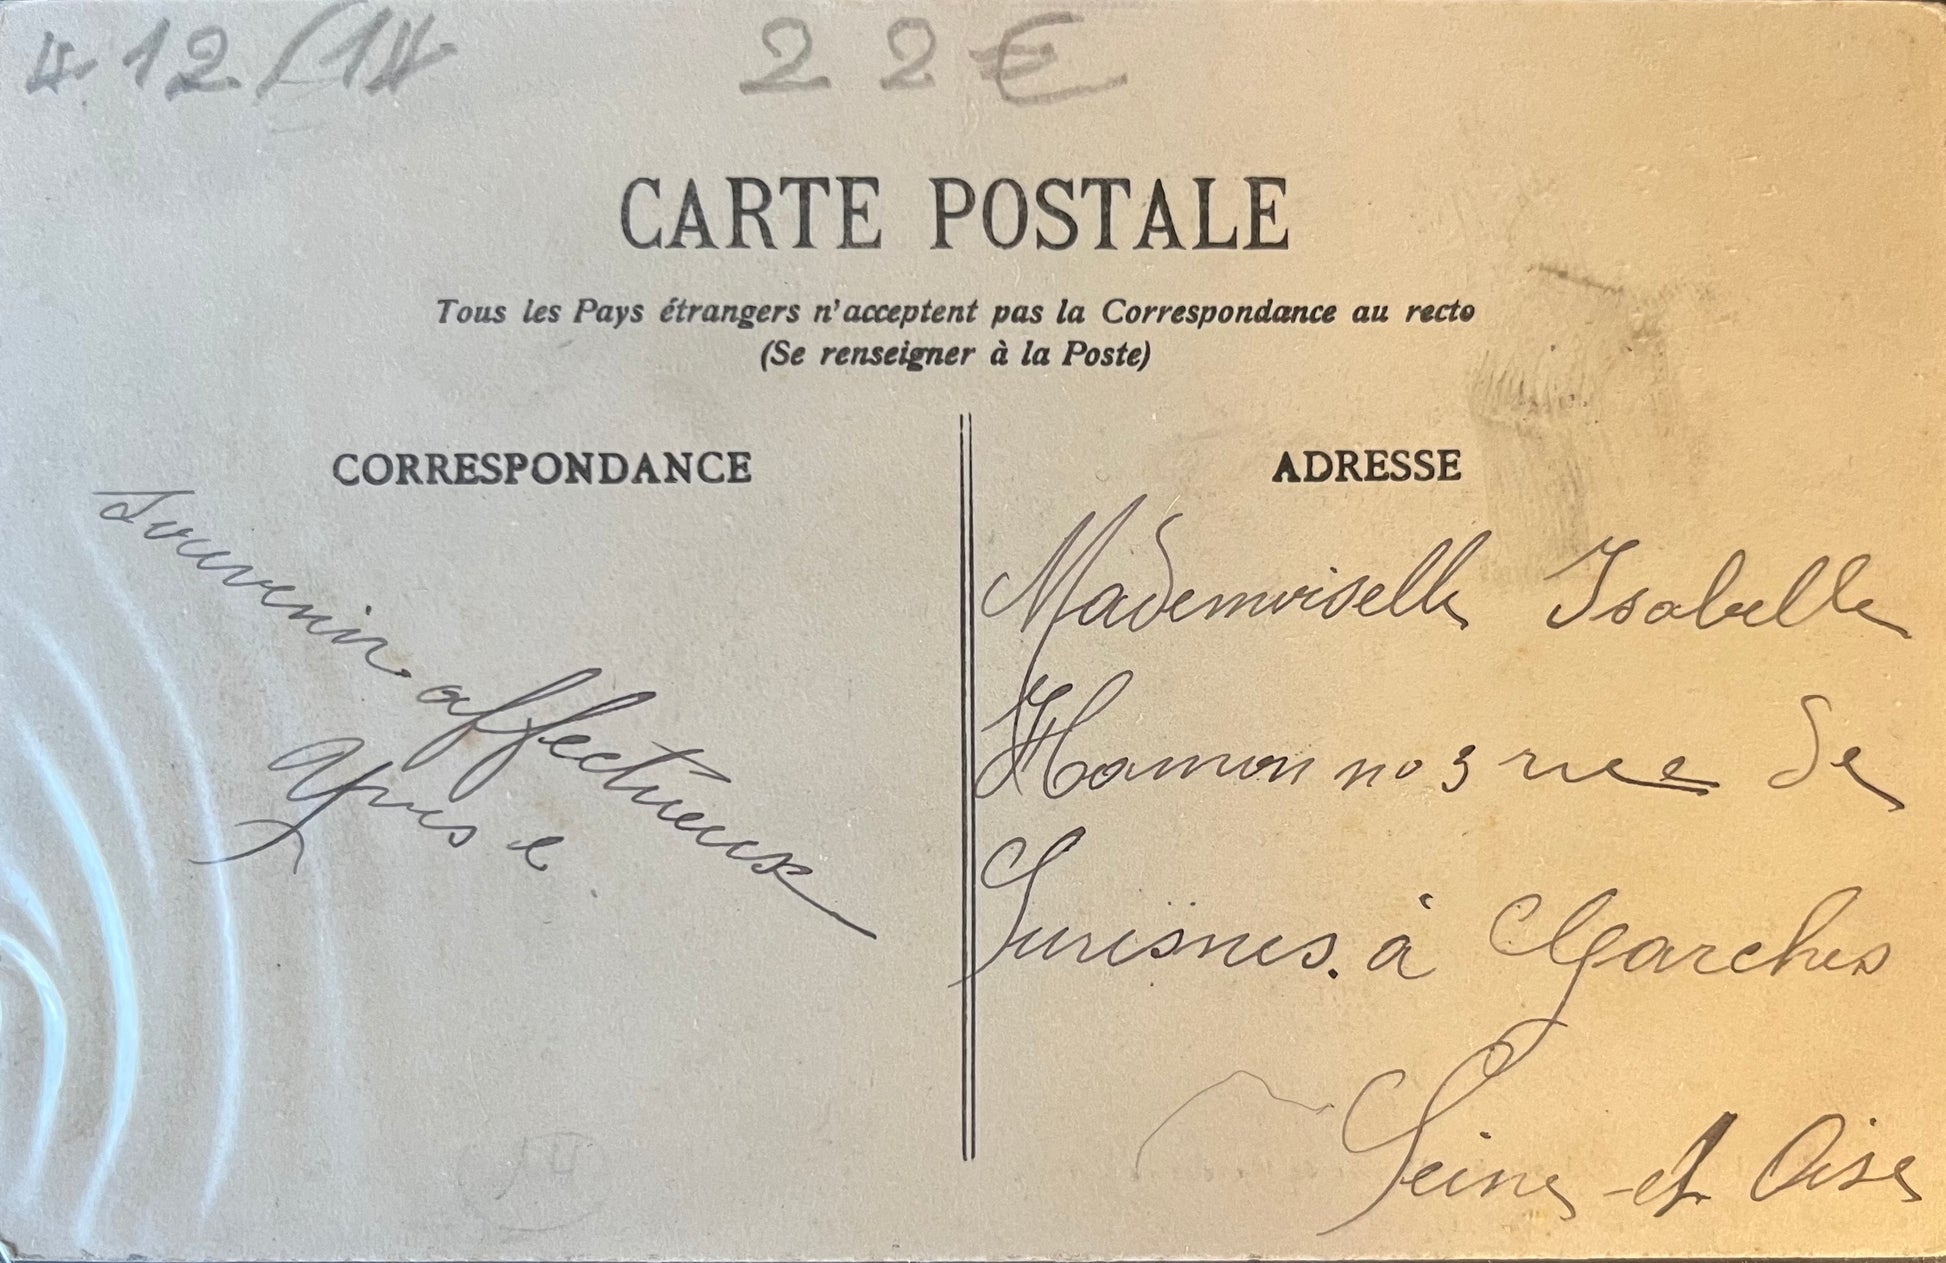 4.12/14 22€
CARTE POSTALE
Tous les Pays étrangers n'acceptent pas la Correspondance au recto
(Se renseigner à la Poste)
CORRESPONDANCE
Souvenir affectueux
ADRESSE
Mademoiselle Isabelle
Hamon no 3 rue de
Suresnes. à Garches
Seine et Oise
14